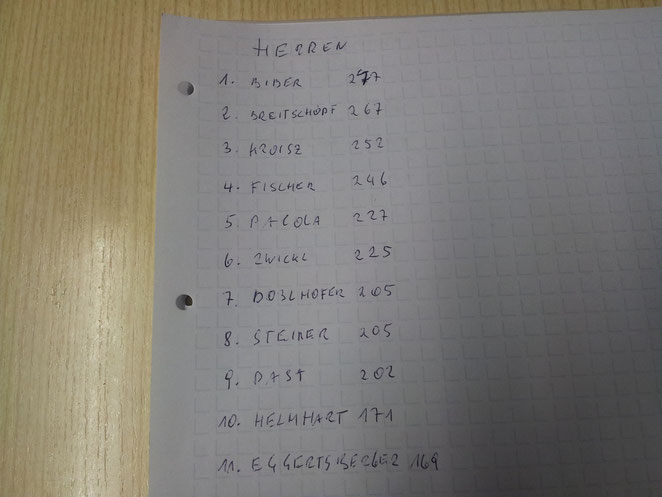 HERREN
1. BIBER 277
2. BREITSCHOPF 267
3. KROISZ 252
4. FISCHER 246
5. PACOLA 227
6. ZWICKL 225
7. DOBLHOFER 205
8. STEINER 205
9. PAST 202
10. HELMHART 171
11. EGGERTSBERGER 169